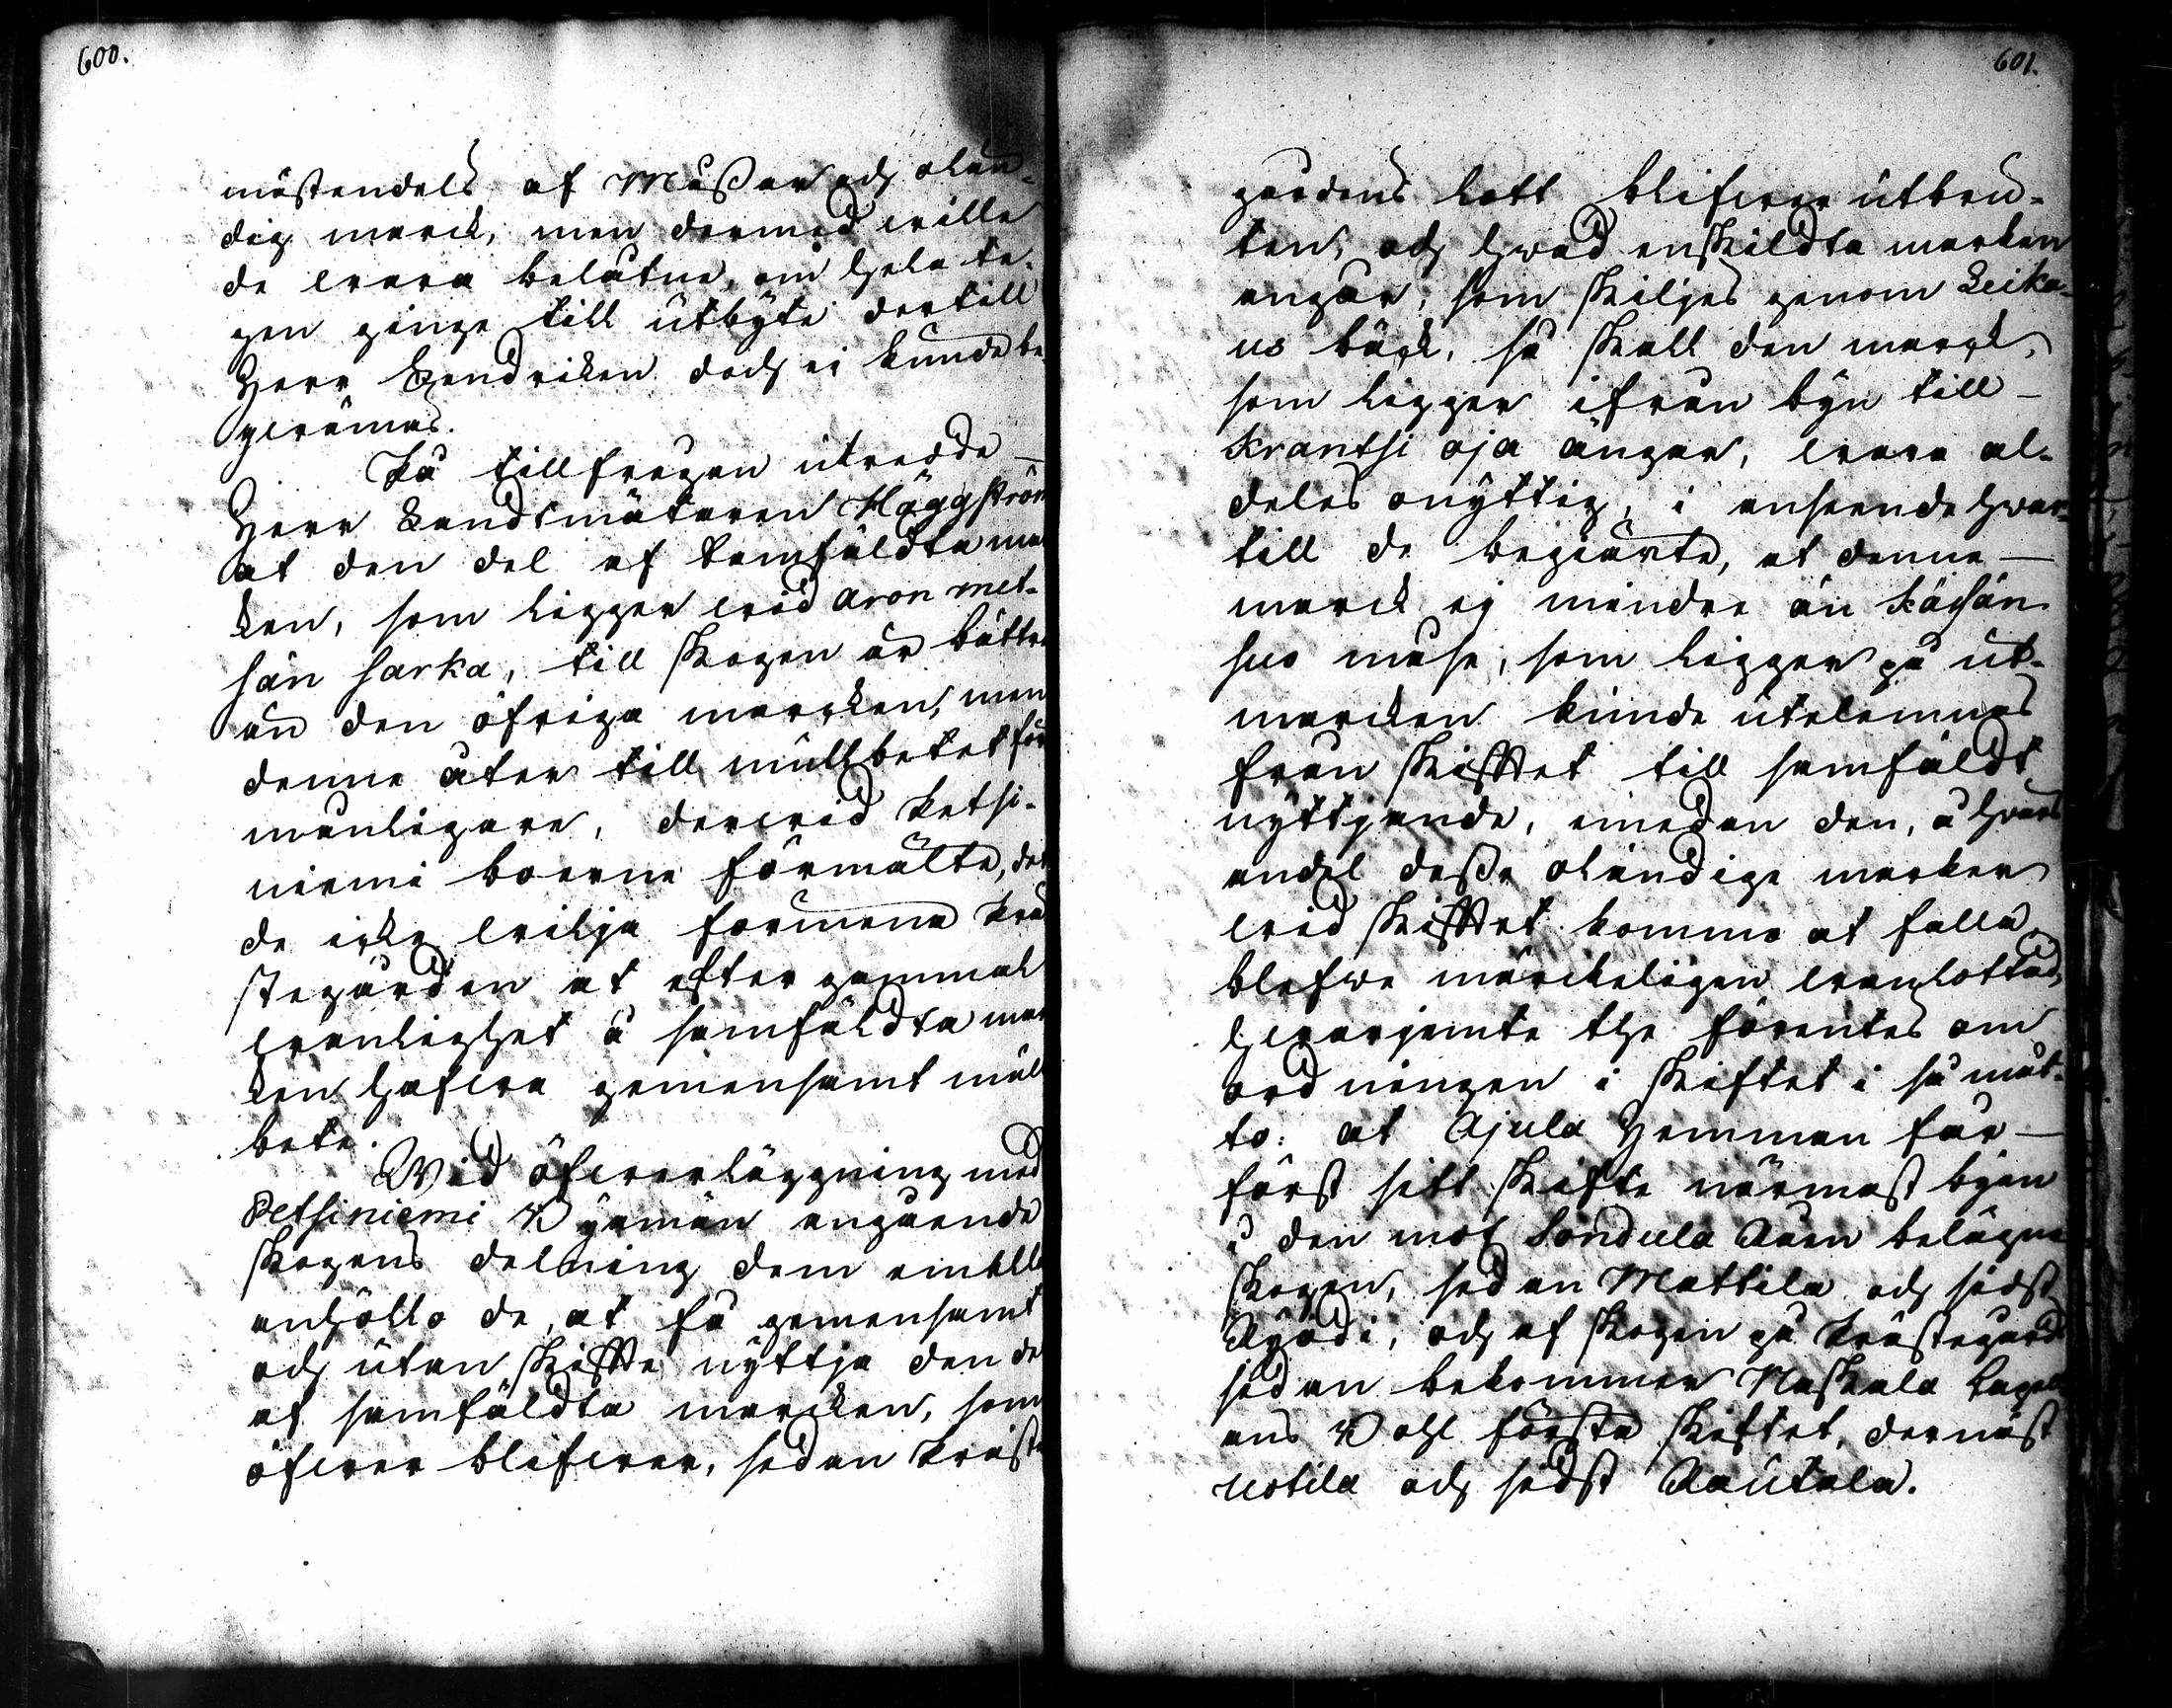 600.
mästendels af Måssar och olän-
dig marck, men dermed wille
de wara belåtne, om hela te-
gen ginge till utbyte dertill
Herr Hendricken doch ei kunde be-
qwämas.
På tillfrågan utredde
Herr Landtmätaren Häggström
at den del af samfäldta mar
ken, som ligger wid Aron met-
sän sarka, till skogen är bättre
än den öfriga marcken, men
denne åter till mullbetet för
monligare, derwid Petsi-
niemi boerne förmälte, det
de icke wilja förmena Prä
stegården at efter gammal
wanlighet å samfäldta mar
ken hafwa gemensamt mull
bete.
Wid öfwerläggning med
Petsiniemi Byamän angående
skogens delning dem emellan
anhöllo de, at få gemensamt
och utan skifte nyttja den del
af samfäldta marcken, som
öfwer blifwer, sedan Präste
601.
gårdens lott blifwer utbru-
ten, och hwad enskildta marken
angår, som skiljes genom Leika-
us bäck, så skall den marck,
som ligger ifrån byn till
Krantsi oja ängar, wara al-
deles onyttig, i anseende hwar-
till de begiärte, at denne
marck ej mindre än Kächän
suo måse, som ligger på ut-
marcken kunde utelemnas
från skifftet till samfäldt
nyttjande, emedan den, å hwars
andel desse oländige marker
wid skifftet komme at falla,
blefwe märckeligen wanlottad,
hwarjemte the förentes om
ordningen i skiftet i så måt-
to: at Ajula Hemman får
först sitt skifte närmast byen
i den mot Sondula Åuen belägne
skogen, sedan Mattila och sidst
Äyödi, och af skogen på Prästegårds
sidan bekommer Naskala Capell
ans Bohl första skiftet, dernäst
Uotila och sidst Aautala.